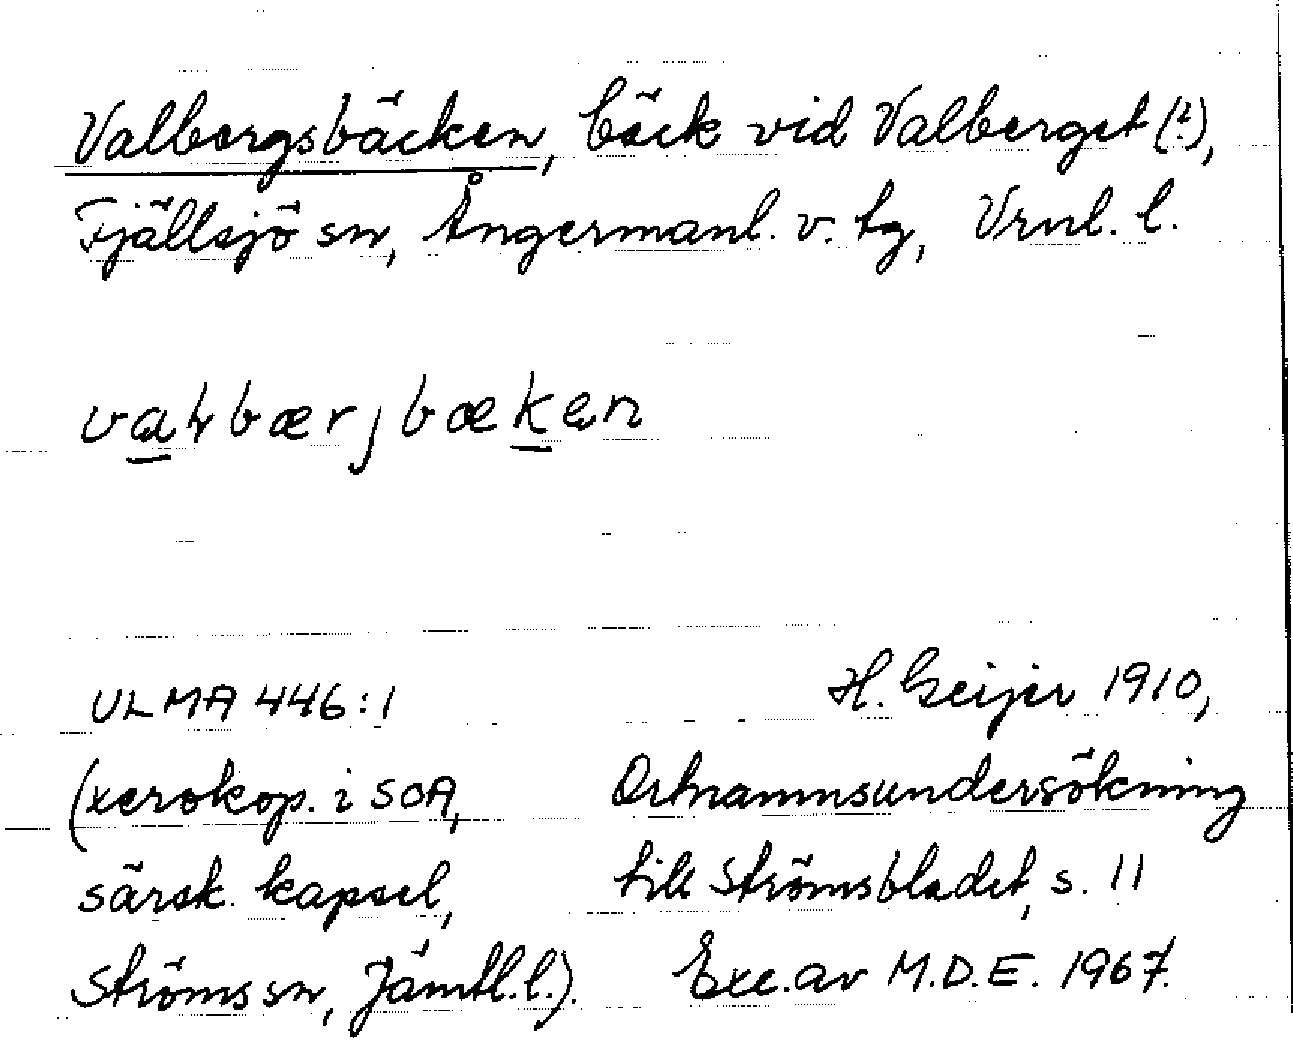 Valbergsbäcken, bäck vid Valberget (?),
Fjällsjö sn, Ångermanl. v. tg, Vrnl. l.
vaɫbærjbækən
ULMA 446:1
H. Geijer 1910,
(xerokop. i SOA,
Ortnamnsundersökning
särsk. kapsel,
till Strömsbladet, s. 11
Ströms sn, Jämtl. l.).
Exc. av M.D.E. 1967.